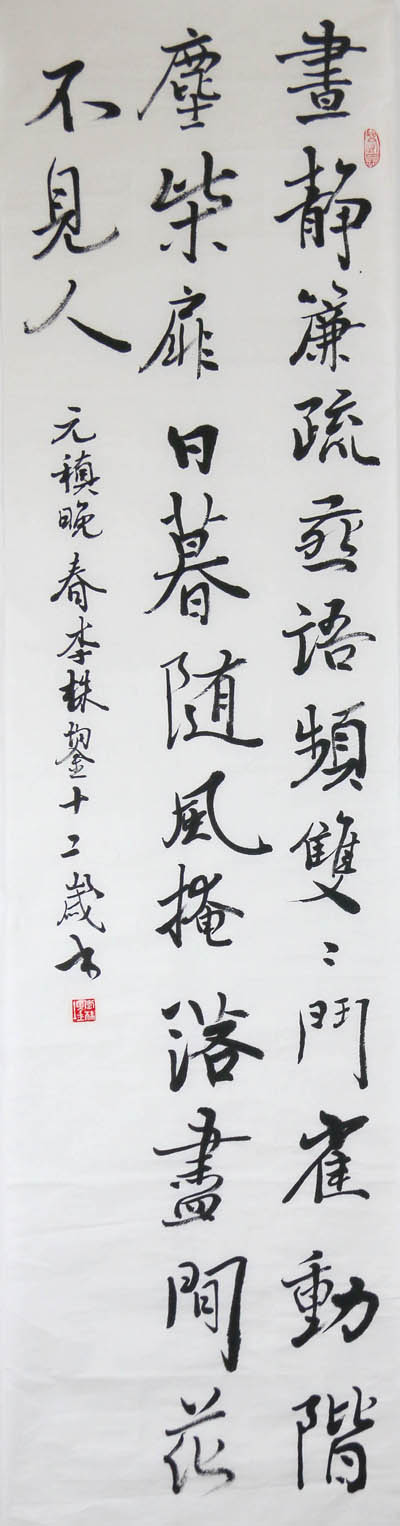 晝靜簾疏燕語頻雙〻鬥雀動階
塵柴扉日暮随風掩落盡間花
不見人
元稹晚春李株鋆十二歲书